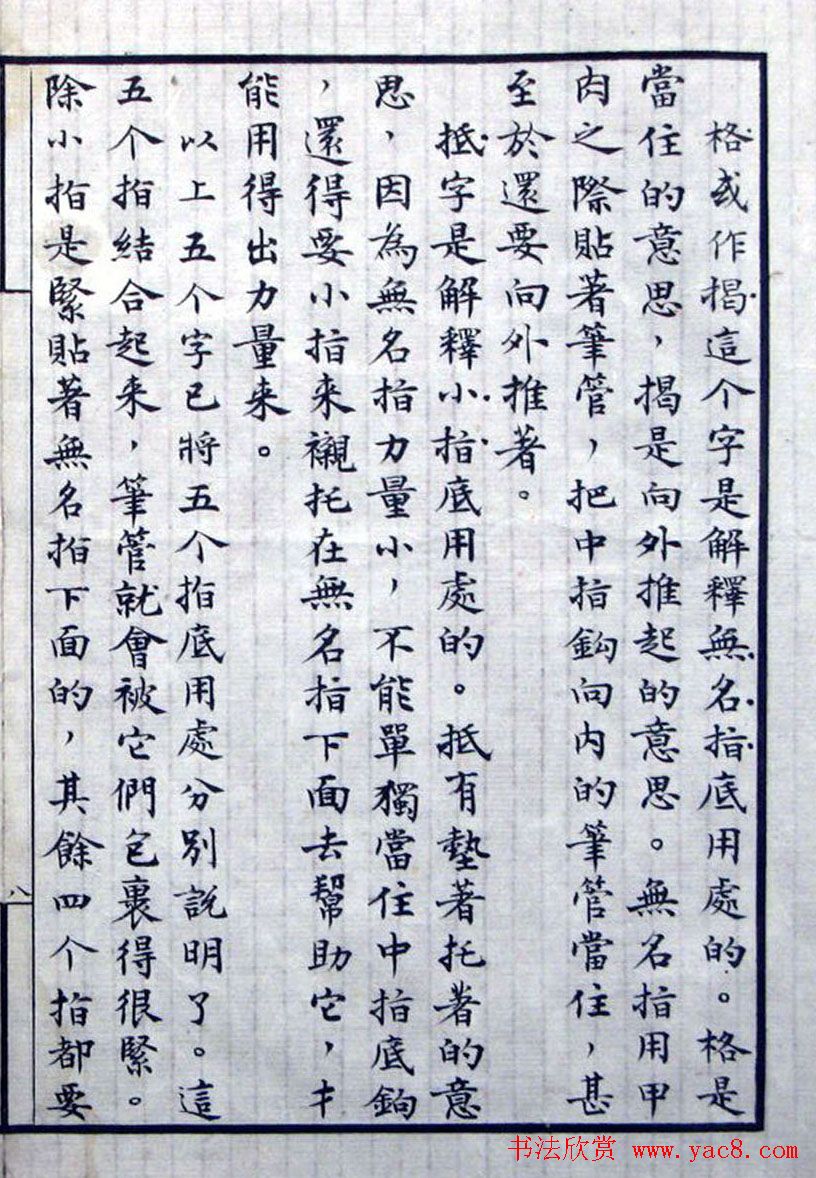 格或作揭這个字是解釋無名指底用處的。格是
當住的意思，揭是向外推起的意思。無名指用甲
肉之際貼著筆管，把中指鈎向内的筆管當住，甚
至於還要向外推著。
抵字是解釋小指底用處的。抵有墊著托著的意
思，因為無名指力量小，不能單獨當住中指底鈎
，還得要小指来襯托在無名指下面去幫助它，才
能用得出力量来。
以上五个字已將五个指底用處分別說明了。這
五个指結合起来，筆管就會被它們包裹得很緊。
除小指是緊貼著無名指下面的，其餘四个指都要
八
书法欣赏 www.yac8.com